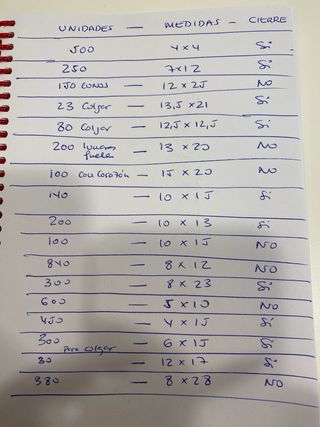 UNIDADES — MEDIDAS — CIERRE
500 4x4 Si
250 7x12 Si
150 CONOS — 12 x 25 NO
23 Colgar — 13,5 x 21 Si
80 Colgar — 12,5 x 12,5 Si
200 — 13 x 20 NO
100 Con Corazón — 15 x 20 NO
140 — 10 x 15 Si
200 — 10 x 13 Si
100 — 10 x 15 NO
840 — 8 x 12 NO
300 — 8 x 23 Si
600 — 5 x 10 NO
450 — 4 x 15 Si
300 Para colgar — 6 x 15 Si
30 — 12 x 17 Si
380 — 8 x 28 NO